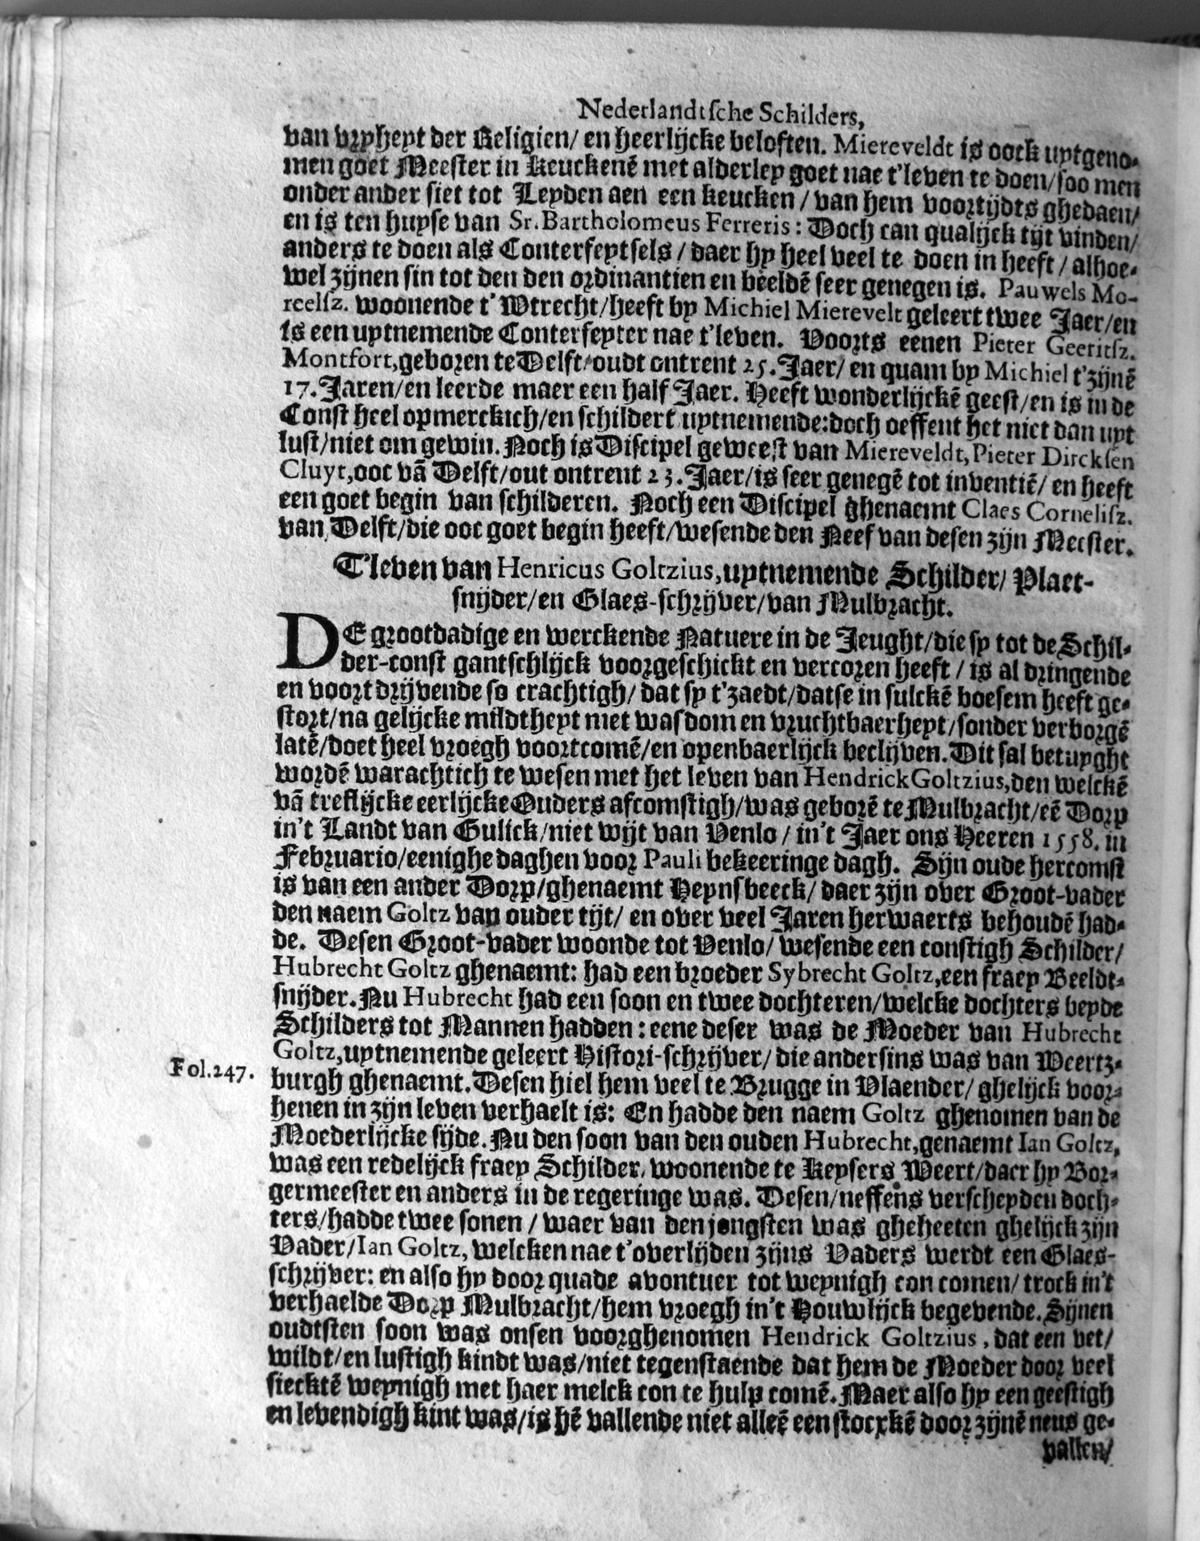 Nederlandtsche Schilders,
van vryheyt der Religien/ en heerlijcke beloften. Miereveldt is oock uytgeno-
men goet Meester in keuckenē met alderley goet nae t'leven te doen/ soo men
onder ander siet tot Leyden aen een keucken / van hem voortijdts ghedaen/
en is ten huyse van Sr. Bartholomeus Ferreris: Doch can qualijck tijt vinden/
anders te doen als Conterfeytsels / daer hy heel veel te doen in heeft / alhoe-
wel zijnen sin tot den den ordinantien en beeldē seer genegen is. Pauwels Mo-
reelsz. woonende t'Wtrecht/ heeft by Michiel Mierevelt geleert twee Jaer/ en
is een uytnemende Conterfeyter nae t'leven. Voorts eenen Pieter Geeritsz.
Montfort, geboren te Delft/ oudt ontrent 25. Jaer/ en quam by Michiel t'zijnē
17. Jaren/ en leerde maer een half Jaer. Heeft wonderlijckē geest/ en is in de
Const heel opmerckich/ en schildert uytnemende: doch oeffent het niet dan uyt
lust/ niet om gewin. Noch is Discipel geweest van Miereveldt, Pieter Dircksen
Cluyt, ooc vā Delft/ out ontrent 23. Jaer/ is seer genegē tot inventiē/ en heeft
een goet begin van schilderen. Noch een Discipel ghenaemt Claes Cornelisz.
van Delft/ die ooc goet begin heeft/ wesende den Neef van desen zijn Meester.
T'leven van Henricus Goltzius, uytnemende Schilder/ Plaet-
snijder/ en Glaes-schrijver/ van Mulbracht.
DE grootdadige en werckende Natuere in de Jeught/ die sy tot de Schil-
der-const gantschlijck voorgeschickt en vercoren heeft / is al dringende
en voort drijvende so crachtigh/ dat sy t'zaedt/ datse in sulckē boesem heeft ge-
stort/ na gelijcke mildtheyt met wasdom en vruchtbaerheyt/ sonder verborgē
latē/ doet heel vroegh voortcomē/ en openbaerlijck beclijven. Dit sal betuyght
wordē warachtich te wesen met het leven van Hendrick Goltzius, den welckē
vā treflijcke eerlijcke Ouders afcomstigh/ was geborē te Mulbracht/ eē Dorp
in't Landt van Gulick/ niet wijt van Venlo / in't Jaer ons Heeren 1558. in
Februario/ eenighe daghen voor Pauli bekeeringe dagh. Sijn oude hercomst
is van een ander Dorp/ ghenaemt Heynsbeeck/ daer zijn over Groot-vader
den naem Goltz van ouder tijt/ en over veel Jaren herwaerts behoudē had-
de. Desen Groot-vader woonde tot Venlo/ wesende een constigh Schilder/
Hubrecht Goltz ghenaemt: had een broeder Sybrecht Goltz, een fraey Beeldt-
snijder. Nu Hubrecht had een soon en twee dochteren/ welcke dochters beyde
Schilders tot Mannen hadden: eene deser was de Moeder van Hubrecht
Goltz, uytnemende geleert Histori-schrijver/ die andersins was van Weertz-
Fol. 247.
burgh ghenaemt. Desen hiel hem veel te Brugge in Vlaender/ ghelijck voor-
henen in zijn leven verhaelt is: En hadde den naem Goltz ghenomen van de
Moederlijcke sijde. Nu den soon van den ouden Hubrecht, genaemt Ian Goltz,
was een redelijck fraey Schilder/ woonende te Keysers Weert/ daer hy Bor-
germeester en anders in de regeringe was. Desen/ neffens verscheyden doch-
ters/ hadde twee sonen / waer van den jongsten was gheheeten ghelijck zijn
Vader/ Ian Goltz, welcken nae t'overlijden zijns Vaders werdt een Glaes-
schrijver: en also hy door quade avontuer tot weynigh con comen/ trock in't
verhaelde Dorp Mulbracht/ hem vroegh in't Houwlijck begevende. Sijnen
oudtsten soon was onsen voorghenomen Hendrick Goltzius, dat een vet/
wildt/ en lustigh kindt was/ niet tegenstaende dat hem de Moeder door veel
sieckte weynigh met haer melck con te hulp comē. Maer also hy een geestigh
en levendigh kint was/ is hē vallende niet alleē een stocxkē door zijnē neus ge-
vallen/